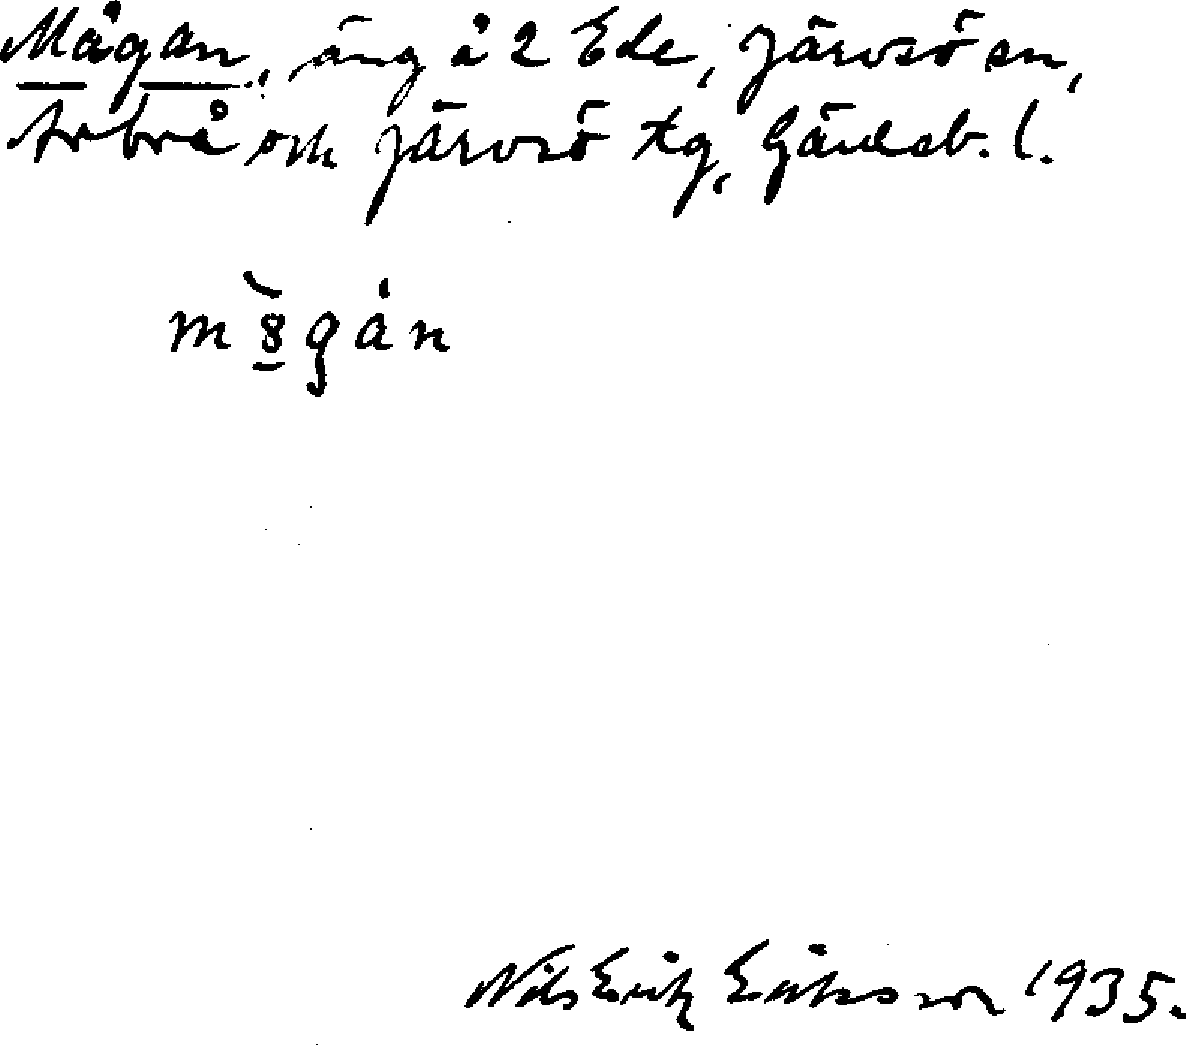 Mågan, äng å 2 Ede, Järvsö sn,
Arbrå och Järvsö tg, Gävleb. l.
m8̲̀gån
Nils Erik Eriksson 1935.